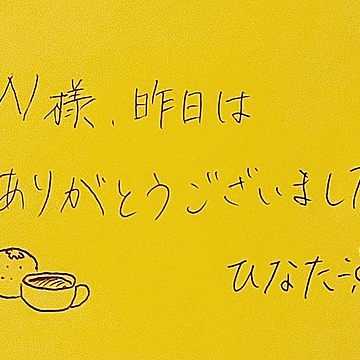 N様、昨日は
ありがとうございました
ひなた